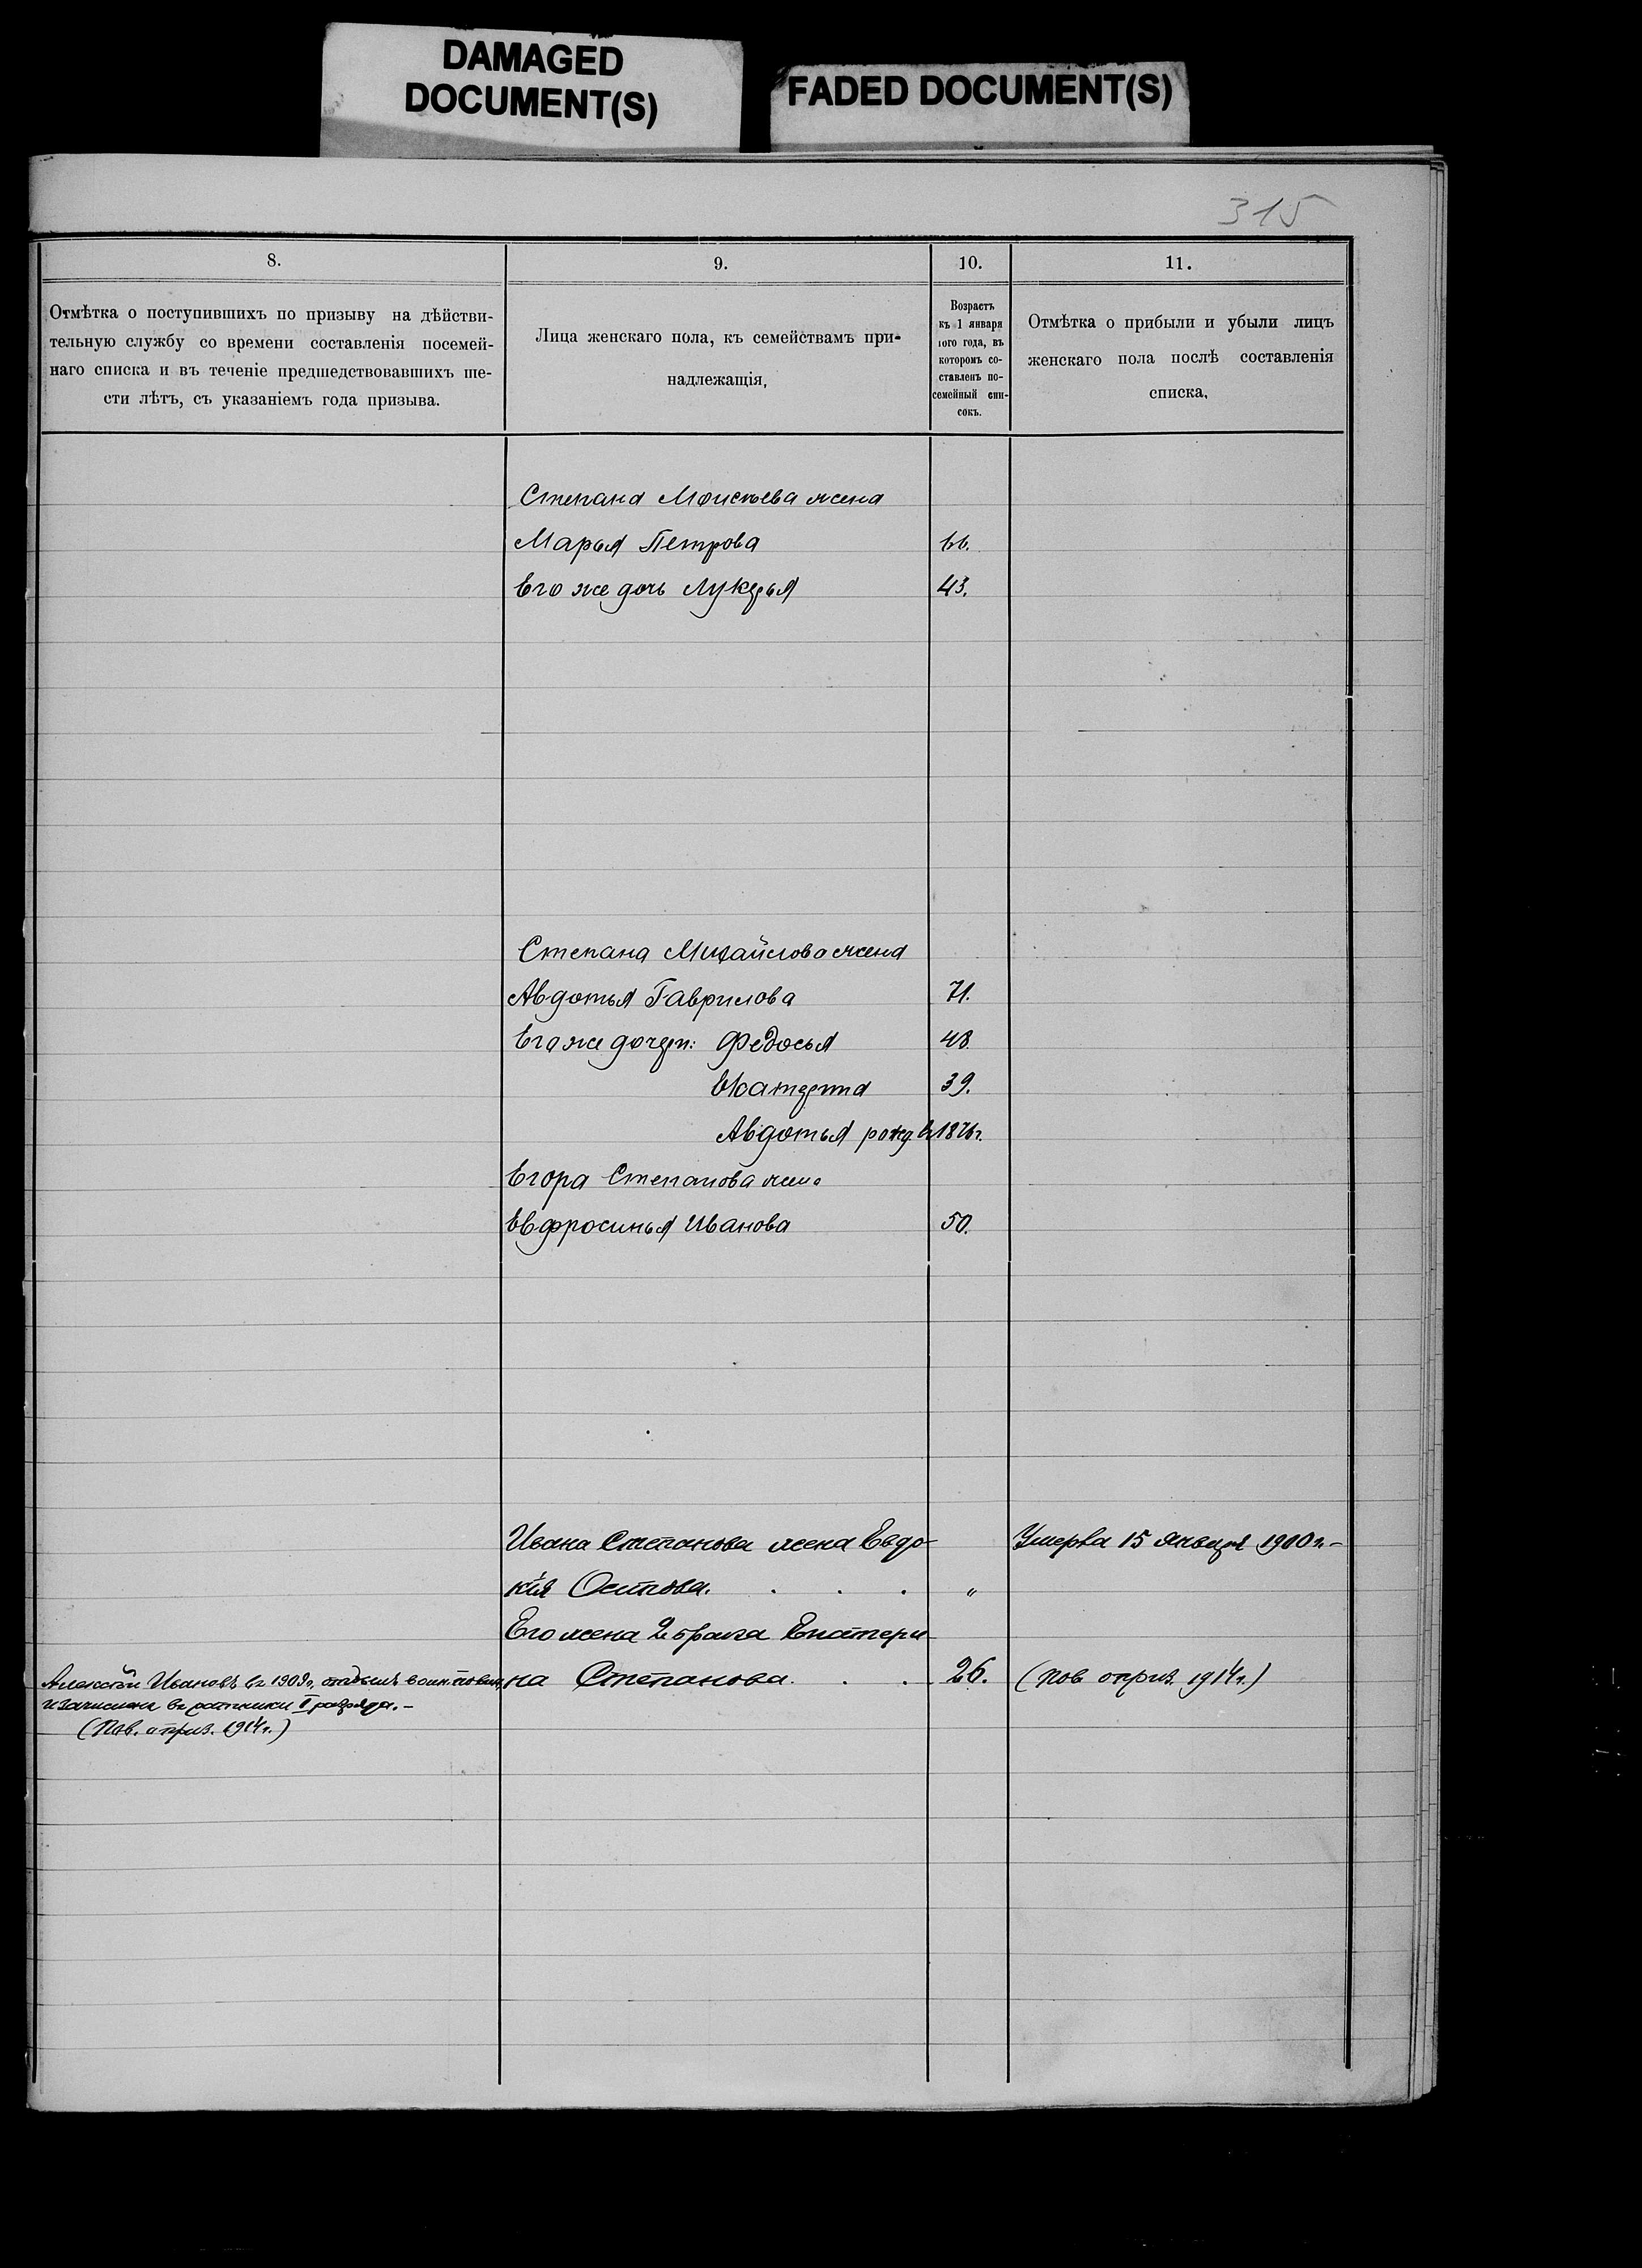 DAMAGED
DOCUMENT(S)
FADED DOCUMENT(S)
315
8.
9.
10.
11.
Отмѣтка о поступившихъ по призыву на дѣйстви-
тельную службу со времени составленія посемей-
наго списка и въ теченіе предшедствовавшихъ ше-
сти лѣтъ, съ указаніемъ года призыва.
Лица женскаго пола, къ семействамъ при-
надлежащія,
Возрастъ
къ 1 января
того года, въ
которомъ со-
ставленъ по-
семейный спи-
сокъ.
Отмѣтка о прибыли и убыли лицъ
женскаго пола послѣ составленія
списка,
Степана Моисѣева жена
Марья Петрова 66.
Его же дочь Лукерья 43.
Степана Михайлова жена
Авдотья Гаврилова 71.
Его же дочери: Федосья 48
Екатерина 39.
Авдотья рожд. въ 1876 г.
Егора Степанова жена
Евфросинья Иванова 50.
Ивана Степанова жена Евдо- Умерла 15 января 1910 г.-
кія Осипова. . . . "
Его жена 2 брака Екатери
Алексѣй Ивановъ въ 1909 г.
на Степанова. . . 26. (Пов. о приз. 1914 г.)
и зачисленъ въ ратники II разряда.-
(Пов. о приз. 1914 г.)